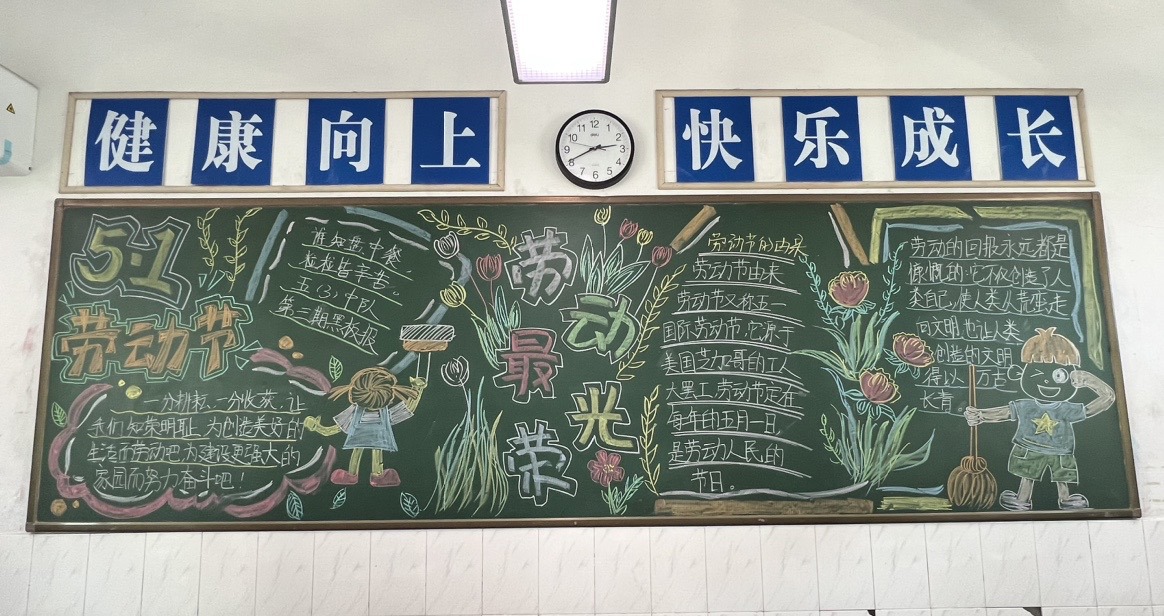 健康向上
快乐成长
5·1
劳动节
谁知盘中餐,
粒粒皆辛苦。
五(3)中队
第三期黑板报
一分耕耘,一分收获.让
我们知荣明耻,为创造美好的
生活而劳动吧,为建设更强大的
家园而努力奋斗吧!
劳动最光荣
劳动节的由来
劳动节由来
劳动节又称五一
国际劳动节,它源于
美国芝加哥的工人
大罢工,劳动节定在
每年的五月一日,
是劳动人民的
节日。
劳动的回报永远都是
慷慨的:它不仅创造了人
类自己,使人类从荒蛮走
向文明,也让人类
创造的文明
得以万古
长青。